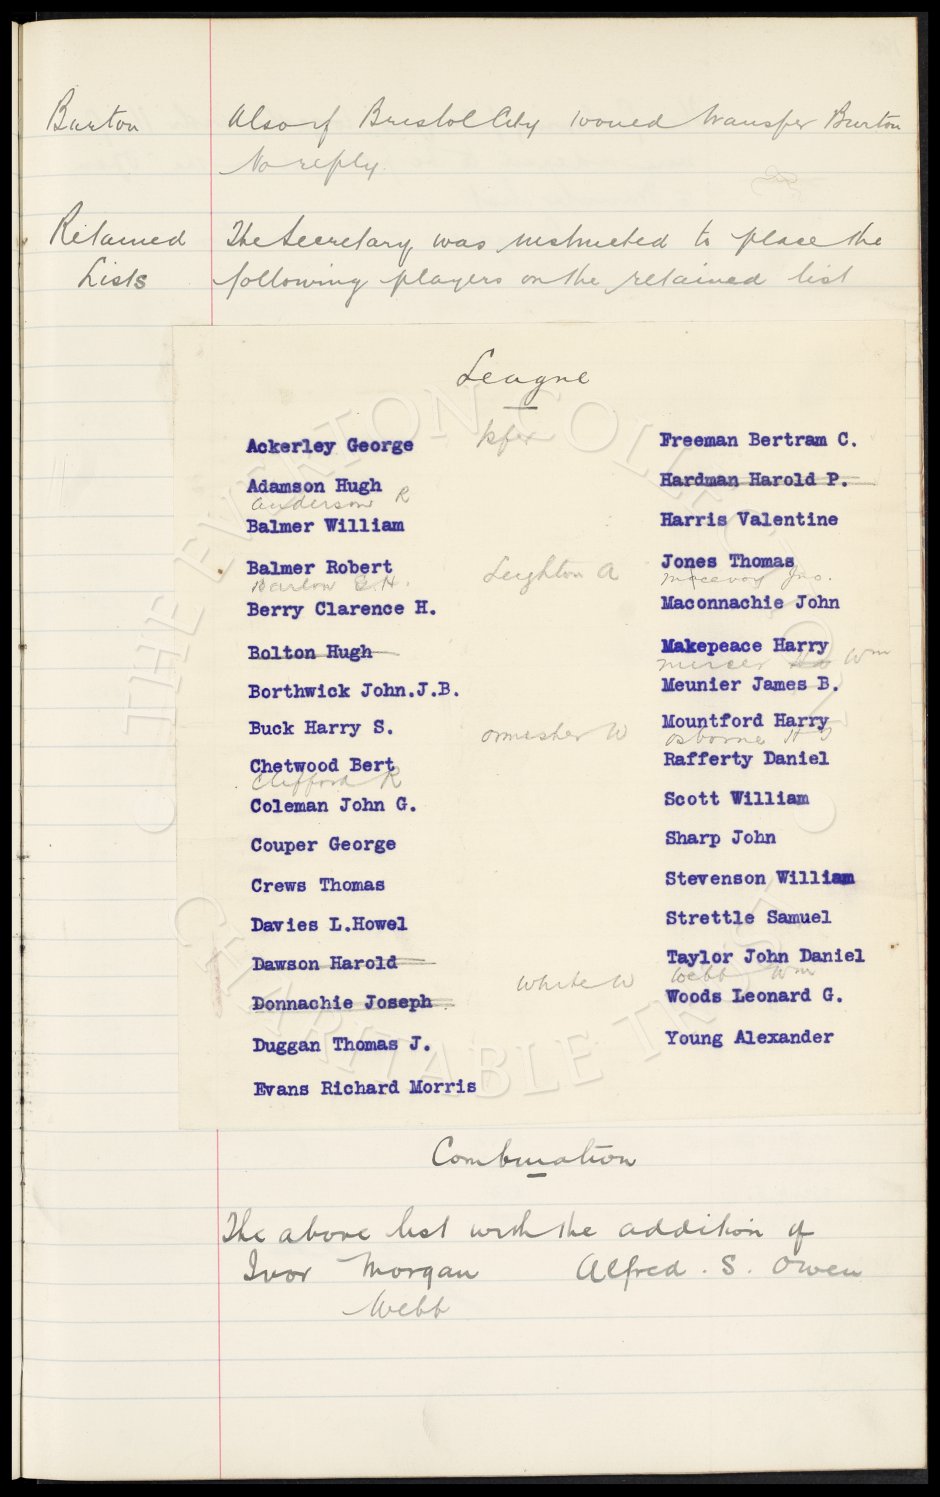 Burton Also if Bristol City would transfer Burton
No reply.
Retained The Secretary was instructed to place the
Lists following players on the retained list
League
Ackerley George
kfer
Adamson Hugh
Anderson R
Balmer William
Balmer Robert
Barlow G.H.
Leighton A
Berry Clarence H.
Bolton Hugh
Borthwick John.J.B.
Buck Harry S.
Ormesher W
Chetwood Bert
Clifford R
Coleman John G.
Couper George
Crews Thomas
Davies L.Howel
Dawson Harold
White W
Donnachie Joseph
Duggan Thomas J.
Evans Richard Morris
Freeman Bertram C.
Hardman Harold P.
Harris Valentine
Jones Thomas
Macevoy Jno.
Maconnachie John
Makepeace Harry
Mercer Wm
Meunier James B.
Mountford Harry
Osborne H J
Rafferty Daniel
Scott William
Sharp John
Stevenson William
Strettle Samuel
Taylor John Daniel
Webb Wm
Woods Leonard G.
Young Alexander
Combination
The above list with the addition of
Ivor Morgan Alfred . S. Owen
Webb
THE EVERTON COLLECTION
CHARITABLE TRUST